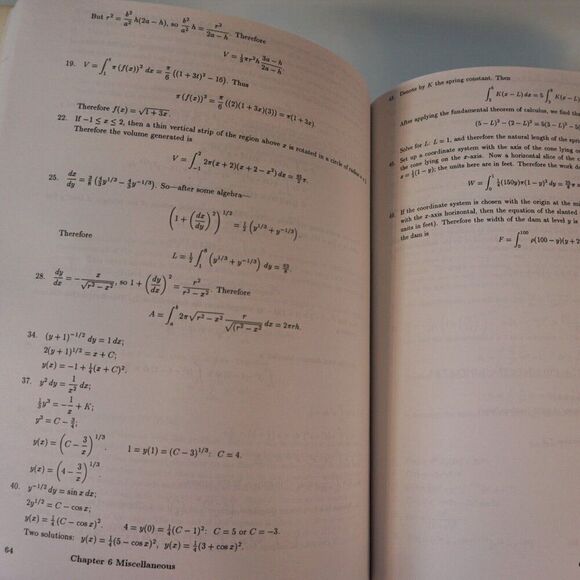 But r² = b²/a² h(2a − h), so b²/a² h = r²/(2a − h). Therefore
V = ⅓πr²h (3a − h)/(2a − h).
19. V = ∫₁ᵗ π(f(x))² dx = π/6 ((1 + 3t)² − 16). Thus
π(f(x))² = π/6 ((2)(1 + 3x)(3)) = π(1 + 3x).
Therefore f(x) = √(1 + 3x).
22. If −1 ≤ x ≤ 2, then a thin vertical strip of the region above x is rotated in a circle of radius x +
Therefore the volume generated is
V = ∫₋₁² 2π(x + 2)(x + 2 − x²) dx = π.
25. dx/dy = ⅜(4/3 y^{1/3} − 4/3 y^{−1/3}). So—after some algebra—
(1 + (dx/dy)²)^{1/2} = ½(y^{1/3} + y^{−1/3}).
Therefore
L = ½ ∫₁⁸ (y^{1/3} + y^{−1/3}) dy = 63/8.
28. dy/dx = −x/√(r² − x²), so 1 + (dy/dx)² = r²/(r² − x²). Therefore
A = ∫ₐᵇ 2π√(r² − x²) r/√(r² − x²) dx = 2πrh.
34. (y + 1)^{−1/2} dy = 1 dx;
2(y + 1)^{1/2} = x + C;
y(x) = −1 + ¼(x + C)².
37. y² dy = 1/x² dx;
⅓y³ = −1/x + K;
y³ = C − 3/x;
y(x) = (C − 3/x)^{1/3}. 1 = y(1) = (C − 3)^{1/3}: C = 4.
y(x) = (4 − 3/x)^{1/3}.
40. y^{−1/2} dy = sin x dx;
2y^{1/2} = C − cos x;
y(x) = ¼(C − cos x)². 4 = y(0) = ¼(C − 1)²: C = 5 or C = −3.
Two solutions: y(x) = ¼(5 − cos x)², y(x) = ¼(3 + cos x)².
64
Chapter 6 Miscellaneous
Denote by K the spring constant. Then
K(x − L) dx = 5 ∫ K(x − L)
After applying the fundamental theorem of calculus, we find tha
(5 − L)² − (2 − L)² = 5(3 − L)² −
Solve for L: L = 1, and therefore the natural length of the spring
Set up a coordinate system with the axis of the cone lying on
the cone lying on the x-axis. Now a horizontal slice of the
x = ¼(1 − y); the units here are in feet. Therefore the work do
W = ∫ ¼(150y)π(1 − y)² dy =
If the coordinate system is chosen with the origin at the mi
with the x-axis horizontal, then the equation of the slanted
units in feet). Therefore the width of the dam at level y is
the dam is
F = ∫₀¹⁰⁰ ρ(100 − y)(y + 2